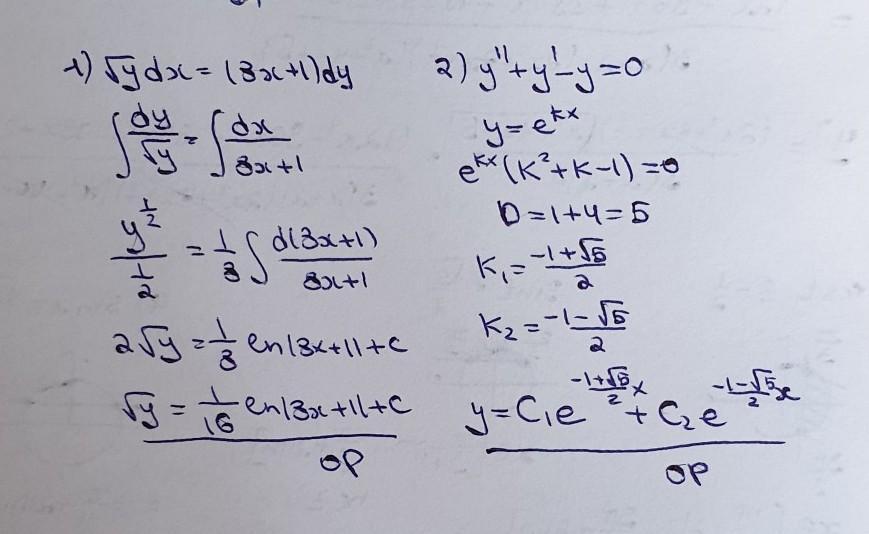 1) √y dx = (8x+1)dy
∫ dy/√y = ∫ dx/(8x+1)
y^(1/2)/(1/2) = 1/8 ∫ d(8x+1)/(8x+1)
2√y = 1/8 ln|8x+1| + C
√y = 1/16 ln|8x+1| + C
ОР
2) y'' + y' - y = 0
y = e^(kx)
e^(kx) (k² + k - 1) = 0
D = 1 + 4 = 5
K₁ = (-1+√5)/2
K₂ = (-1-√5)/2
y = C₁e^((-1+√5)/2 x) + C₂e^((-1-√5)/2 x)
ОР